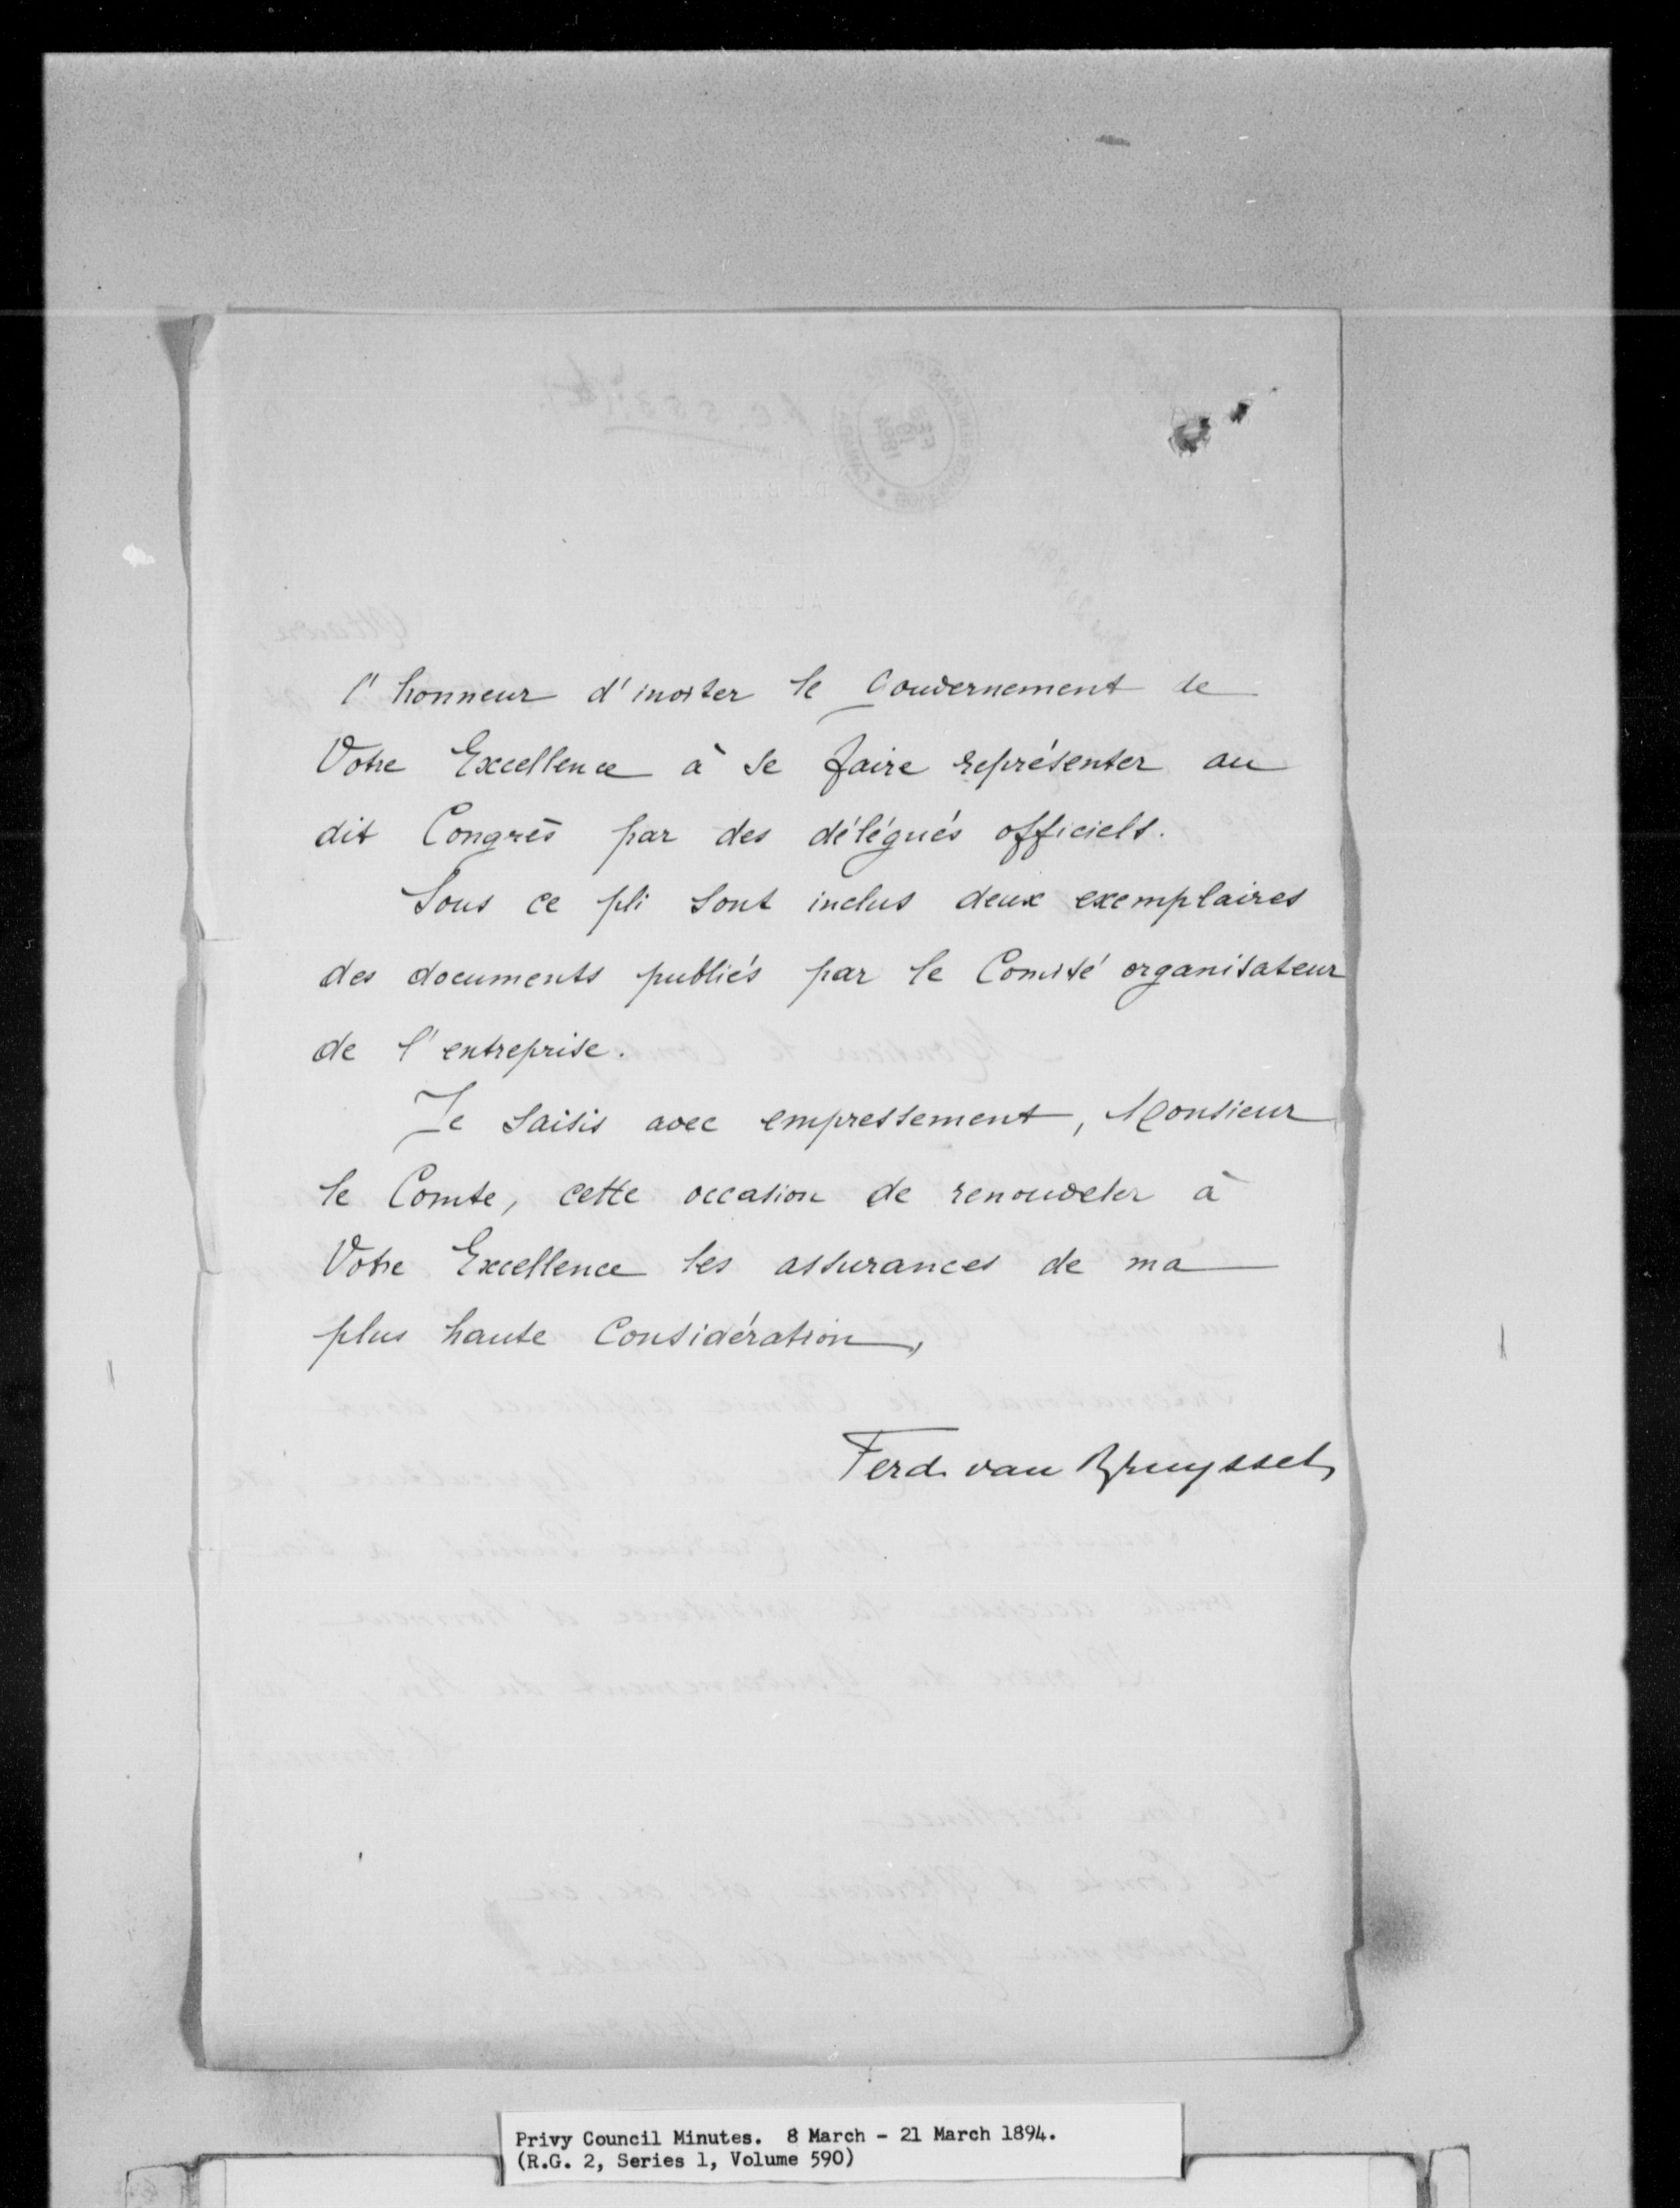 l'honneur d'inviter le Gouvernement de
Votre Excellence à se faire représenter au
dit Congrès par des délégués officiels.
Sous ce pli sont inclus deux exemplaires
des documents publiés par le Comité organisateur
de l'entreprise.
Je saisis avec empressement, Monsieur
le Comte, cette occasion de renouveler à
Votre Excellence les assurances de ma
plus haute Considération,
Ferd. van Bruyssel
Privy Council Minutes. 8 March - 21 March 1894.
(R.G. 2, Series 1, Volume 590)